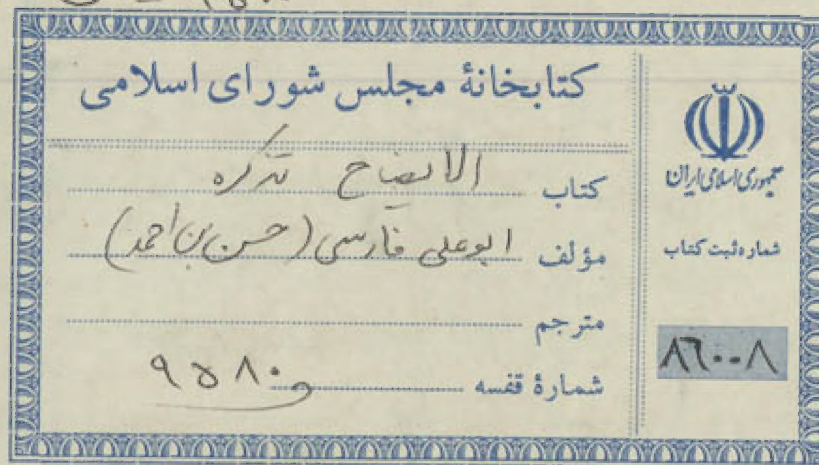 کتابخانهٔ مجلس شورای اسلامی
کتاب الایضاح تذکره
مؤلف ابوعلی فارسی (حسن بن احمد)
مترجم
شمارهٔ قفسه ۹۵۸۰
جمهوری اسلامی ایران
شماره ثبت کتاب
۸۶۰۰۸